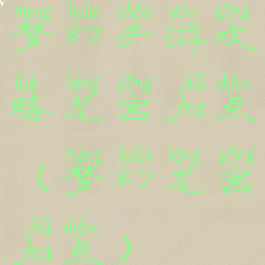 mèng huàn shǒu yóu gōng
梦幻手游攻
lüè lóng gōng jiā diǎn
略龙宫加点
mèng huàn lóng gōng
（梦幻龙宫
jiā diǎn
加点）